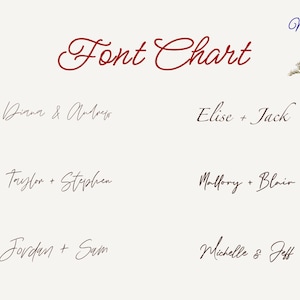 Font Chart
Diana & Andrew
Elise + Jack
Taylor + Stephen
Mallory + Blair
Jordan + Sam
Michelle & Jeff